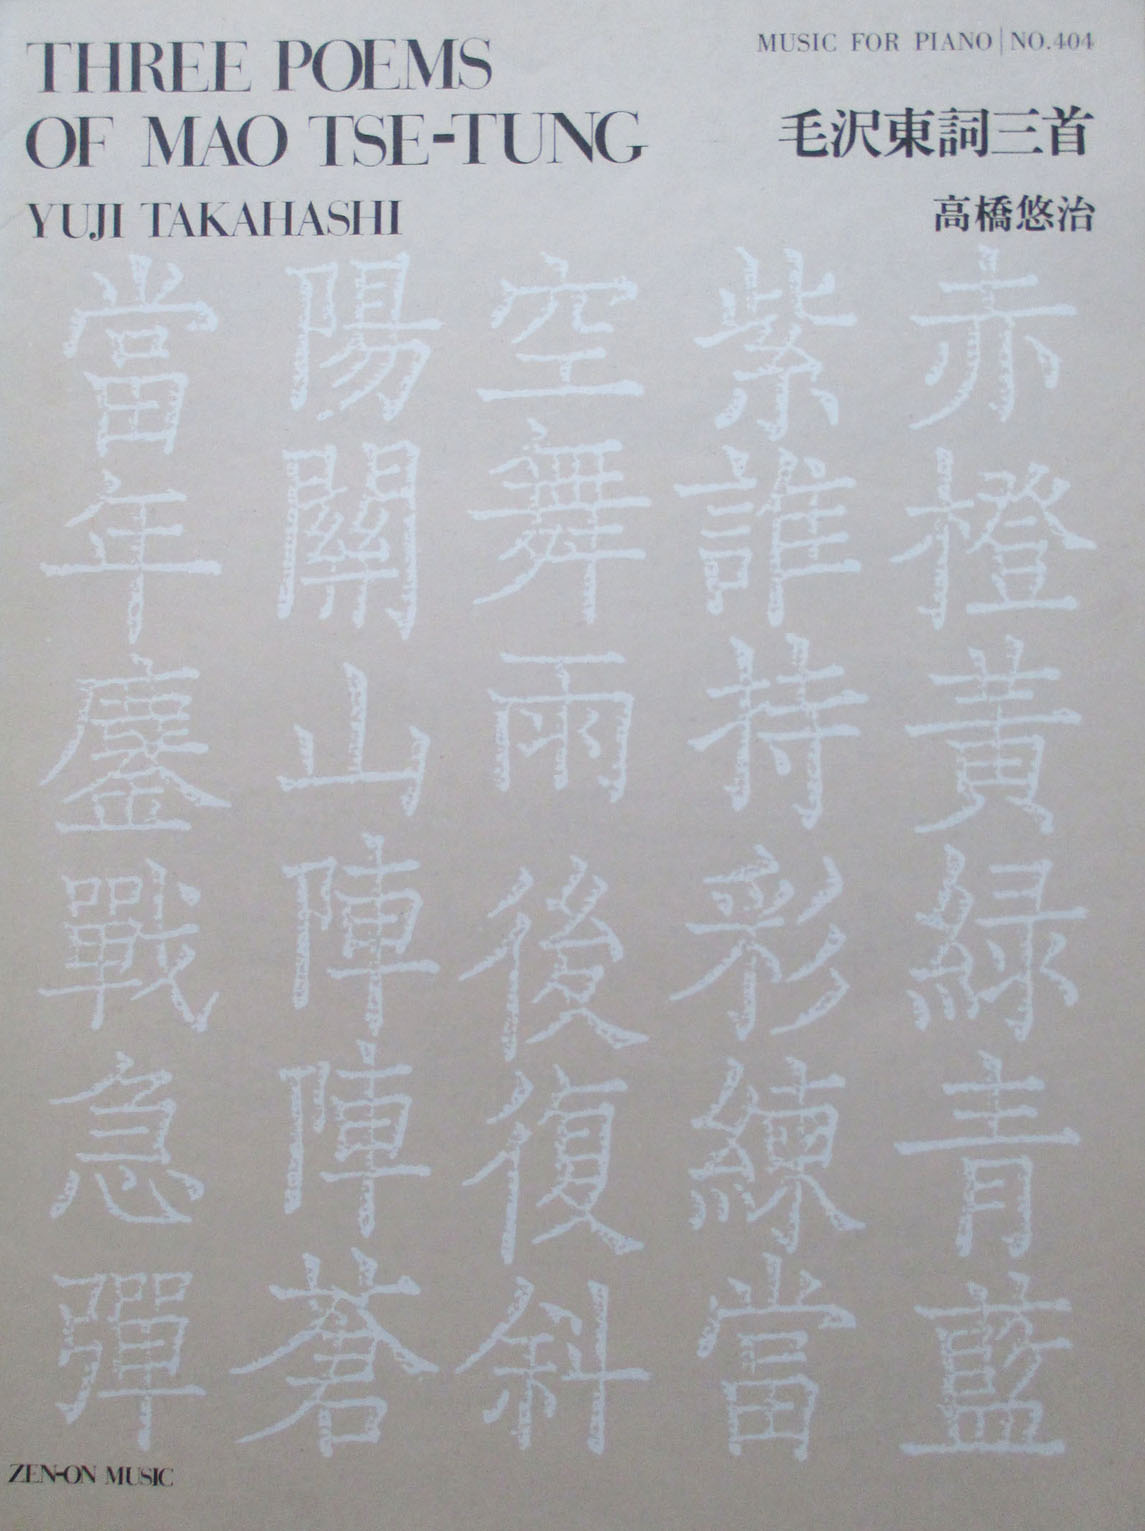 THREE POEMS
OF MAO TSE-TUNG
YUJI TAKAHASHI
MUSIC FOR PIANO | NO.404
毛沢東詞三首
高橋悠治
赤橙黄緑青藍
紫誰持彩練當
空舞雨後復斜
陽關山陣陣蒼
當年鏖戰急彈
ZEN-ON MUSIC